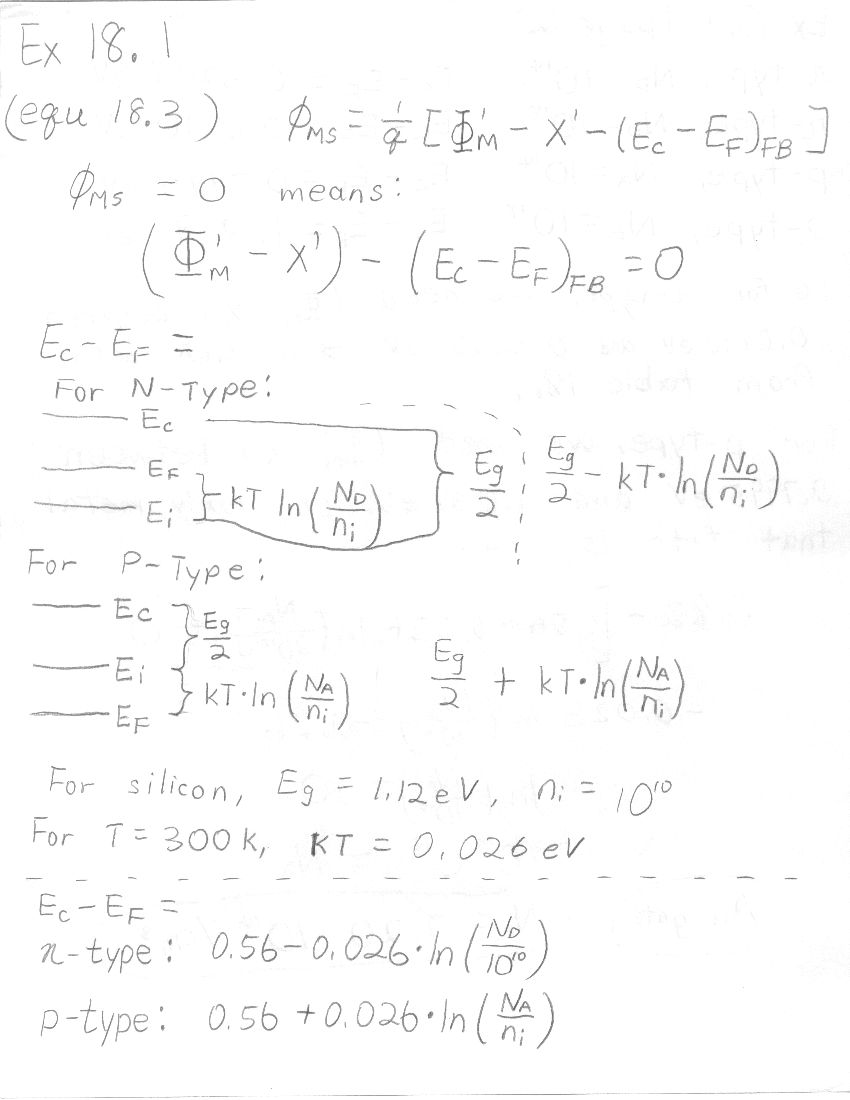 Ex 18.1
(equ 18.3) ϕMS = 1/q [Φ'M − X' − (Ec − EF)FB]
ϕMS = 0 means:
(Φ'M − X') − (Ec − EF)FB = 0
Ec − EF =
For N-Type:
Ec
EF
Ei
kT ln(ND/ni)
Eg/2
Eg/2 − kT·ln(ND/ni)
For P-Type:
Ec
Ei
EF
Eg/2
kT·ln(NA/ni)
Eg/2 + kT·ln(NA/ni)
For silicon, Eg = 1.12 eV, ni = 10¹⁰
For T = 300 k, KT = 0.026 eV
Ec − EF =
n-type: 0.56 − 0.026·ln(ND/10¹⁰)
p-type: 0.56 + 0.026·ln(NA/ni)